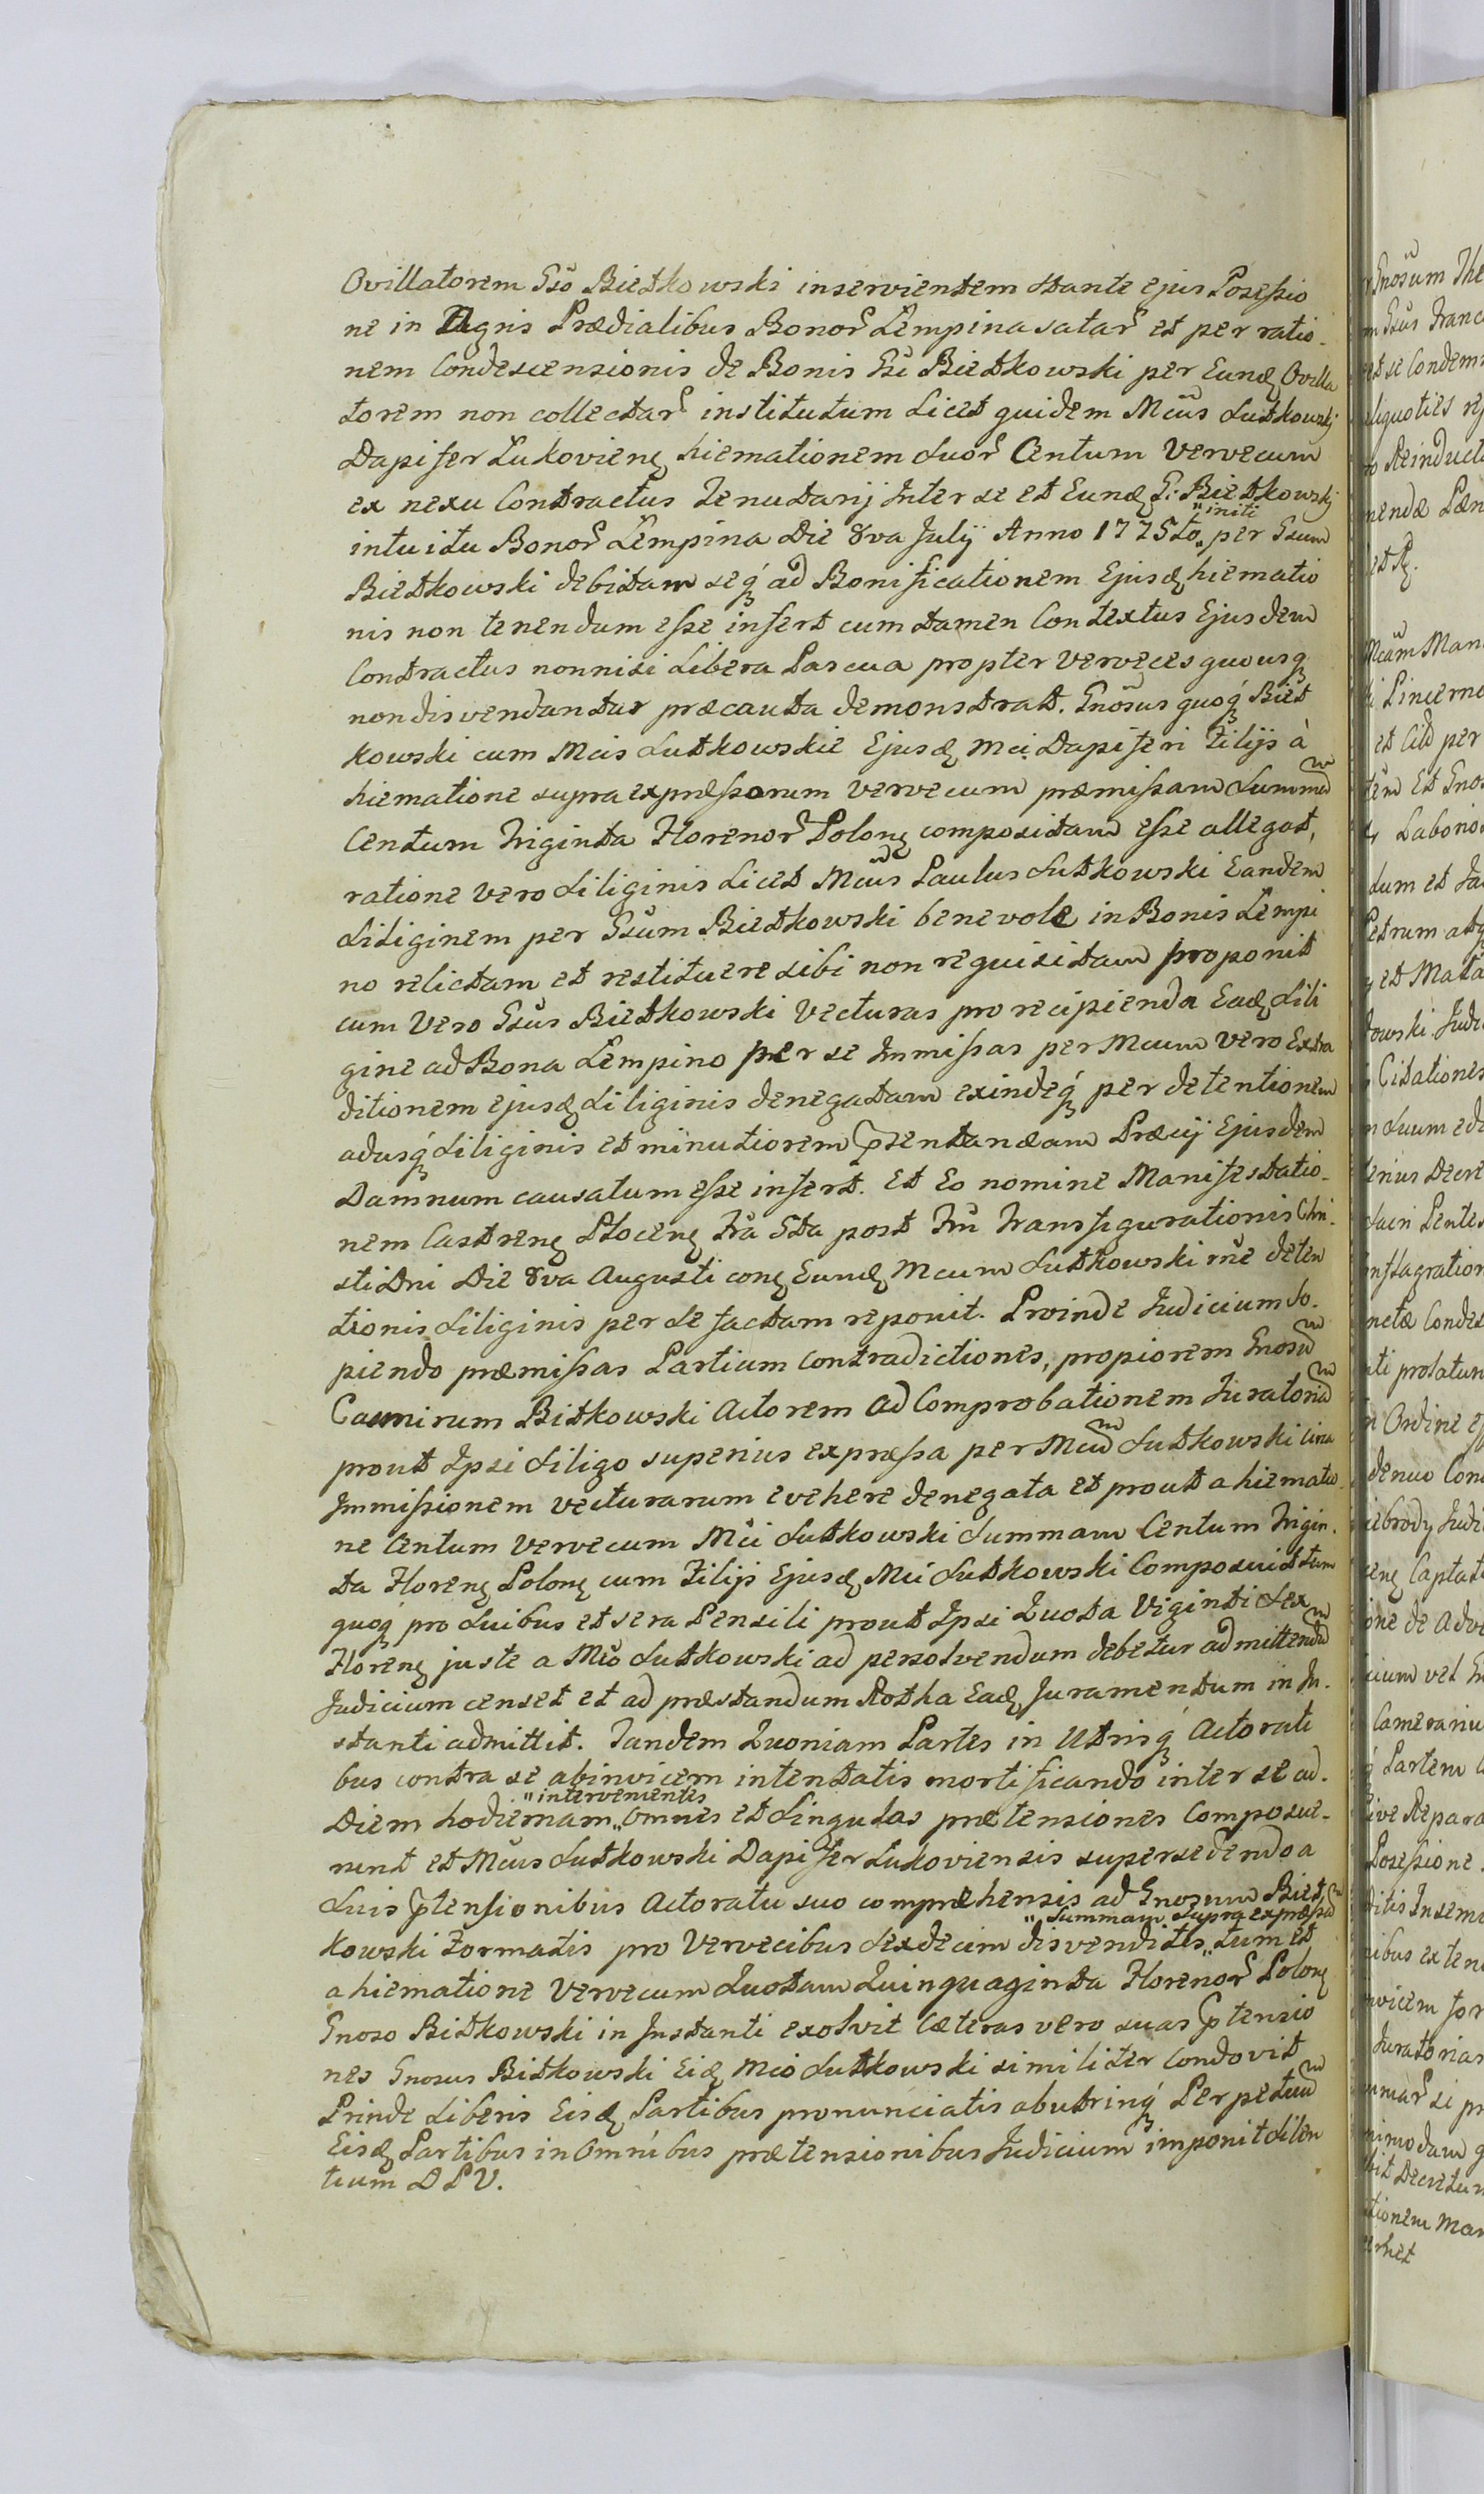 Ovillatorem Gso Bietkowski inservientem stante ejus Poseßio
ne in Agris Prædialibus Bonor Łempina satar et per ratio-
nem Condescensionis de Bonis Gsi Bietkowski per Eundę Ovilla
torem non collectar institutum Licet quidem Mcus Lutkowskj
Dapifer Lukovienę hiemationem duor Centum Vervecum
ex nexu Contractus Tenutarij Inter se et Eundę G: Bietkowskj
intuitu Bonor Łempina Die 8va July Anno 1775to „initi per Gsum
Bietkowski debitam seq́ ad Bonificationem Ejusdę hiematio
nis non tenendum eße infert cum tamen Contextus Ejusdem
Contractus nonnisi Libera Pascua propter Verveces quousq
non disvendantur præcauta demonstrat. Gnosus quoq́ Biet
kowski cum Mcis Lutkowskie Ejusdę Mci Dapiferi Filijs à
hiematione supra expreßorum vervecum præmißam Summam
Centum Triginta Florenor Polonę compositam eße allegat,
ratione vero Siliginis Licet Mcus Paulus Lutkowski Eandem
Siliginem per Gsum Bietkowski benevole in Bonis Łempi
no relictam et restituere sibi non requisitam proponit
cum Vero Gsus Bietkowski Vecturas pro recipienda Eadę Sili
gine ad Bona Łempino per se Immißas per Mcum vero Extra
ditionem ejusdę Siliginis denegatam exindeq́ per detentionem
adusq́ Siliginis et minutiorem ꝑsentanæam Præcij Ejusdem
Damnum causatum eße infert. Et Eo nomine Manifestatio-
nem Castrenę Płocenę Fra 5ta post Fm Transfigurationis Chri-
sti Dni Die 8va Augusti conę Eundę Mcum Lutkowski rne deten
tionis Siliginis per se factam reponit. Proinde Judicium So-
piendo præmißas Partium Contradictiones, propiorem Gnosum
Casimirum Bitkowski Actorem ad Comprobationem Juratoriam
prout Ipsi Siligo superius expreßa per Mcum Lutkowski circa
Immißionem vecturarum evehere denegata et prout a hiematio-
ne Centum Vervecum Mci Lutkowski Summam Centum Trigin-
ta Florenę Polonę cum Filijs Ejusdę Mci Lutkowski Composuit tum
quoq́ pro Suibus et sera Pensili prout Ipsi Quota Viginti Sex
Florenę juste a Mco Lutkowski ad persolvendum debetur admittendum
Judicium censet et ad præstandum Rotha Eadę Juramentum in In-
stanti admittit. Tandem Quoniam Partes in Utrisq́ Actorati
bus contra se abinvicem intentatis mortificando inter se ad-
Diem hodiernam „intervenientes Omnes et Singulas prætensiones Composue-
runt et Mcus Lutkowski Dapifer Lukoviensis supersedendo a
Suis ꝑtensionibus Actoratu suo comprehensis ad Gnosum Biet
kowski Formatis pro Vervecibus Sexdecim disvenditis „Summam supra expreßam tum et
a hiematione Vervecum Quotam Quinquaginta Florenor Polonę
Gnoso Bitkowski in Instanti exolvit Cæteras vero suas ꝑtensio
nes Gnosus Bitkowski Eidę Mco Lutkowski similiter Condovit
Prinde Liberis Eisdę Partibus pronunciatis abutrinq́ Perpetuum
Eisdę Partibus in Omnibus prætensionibus Judicium imponit Silen
tium DPV.